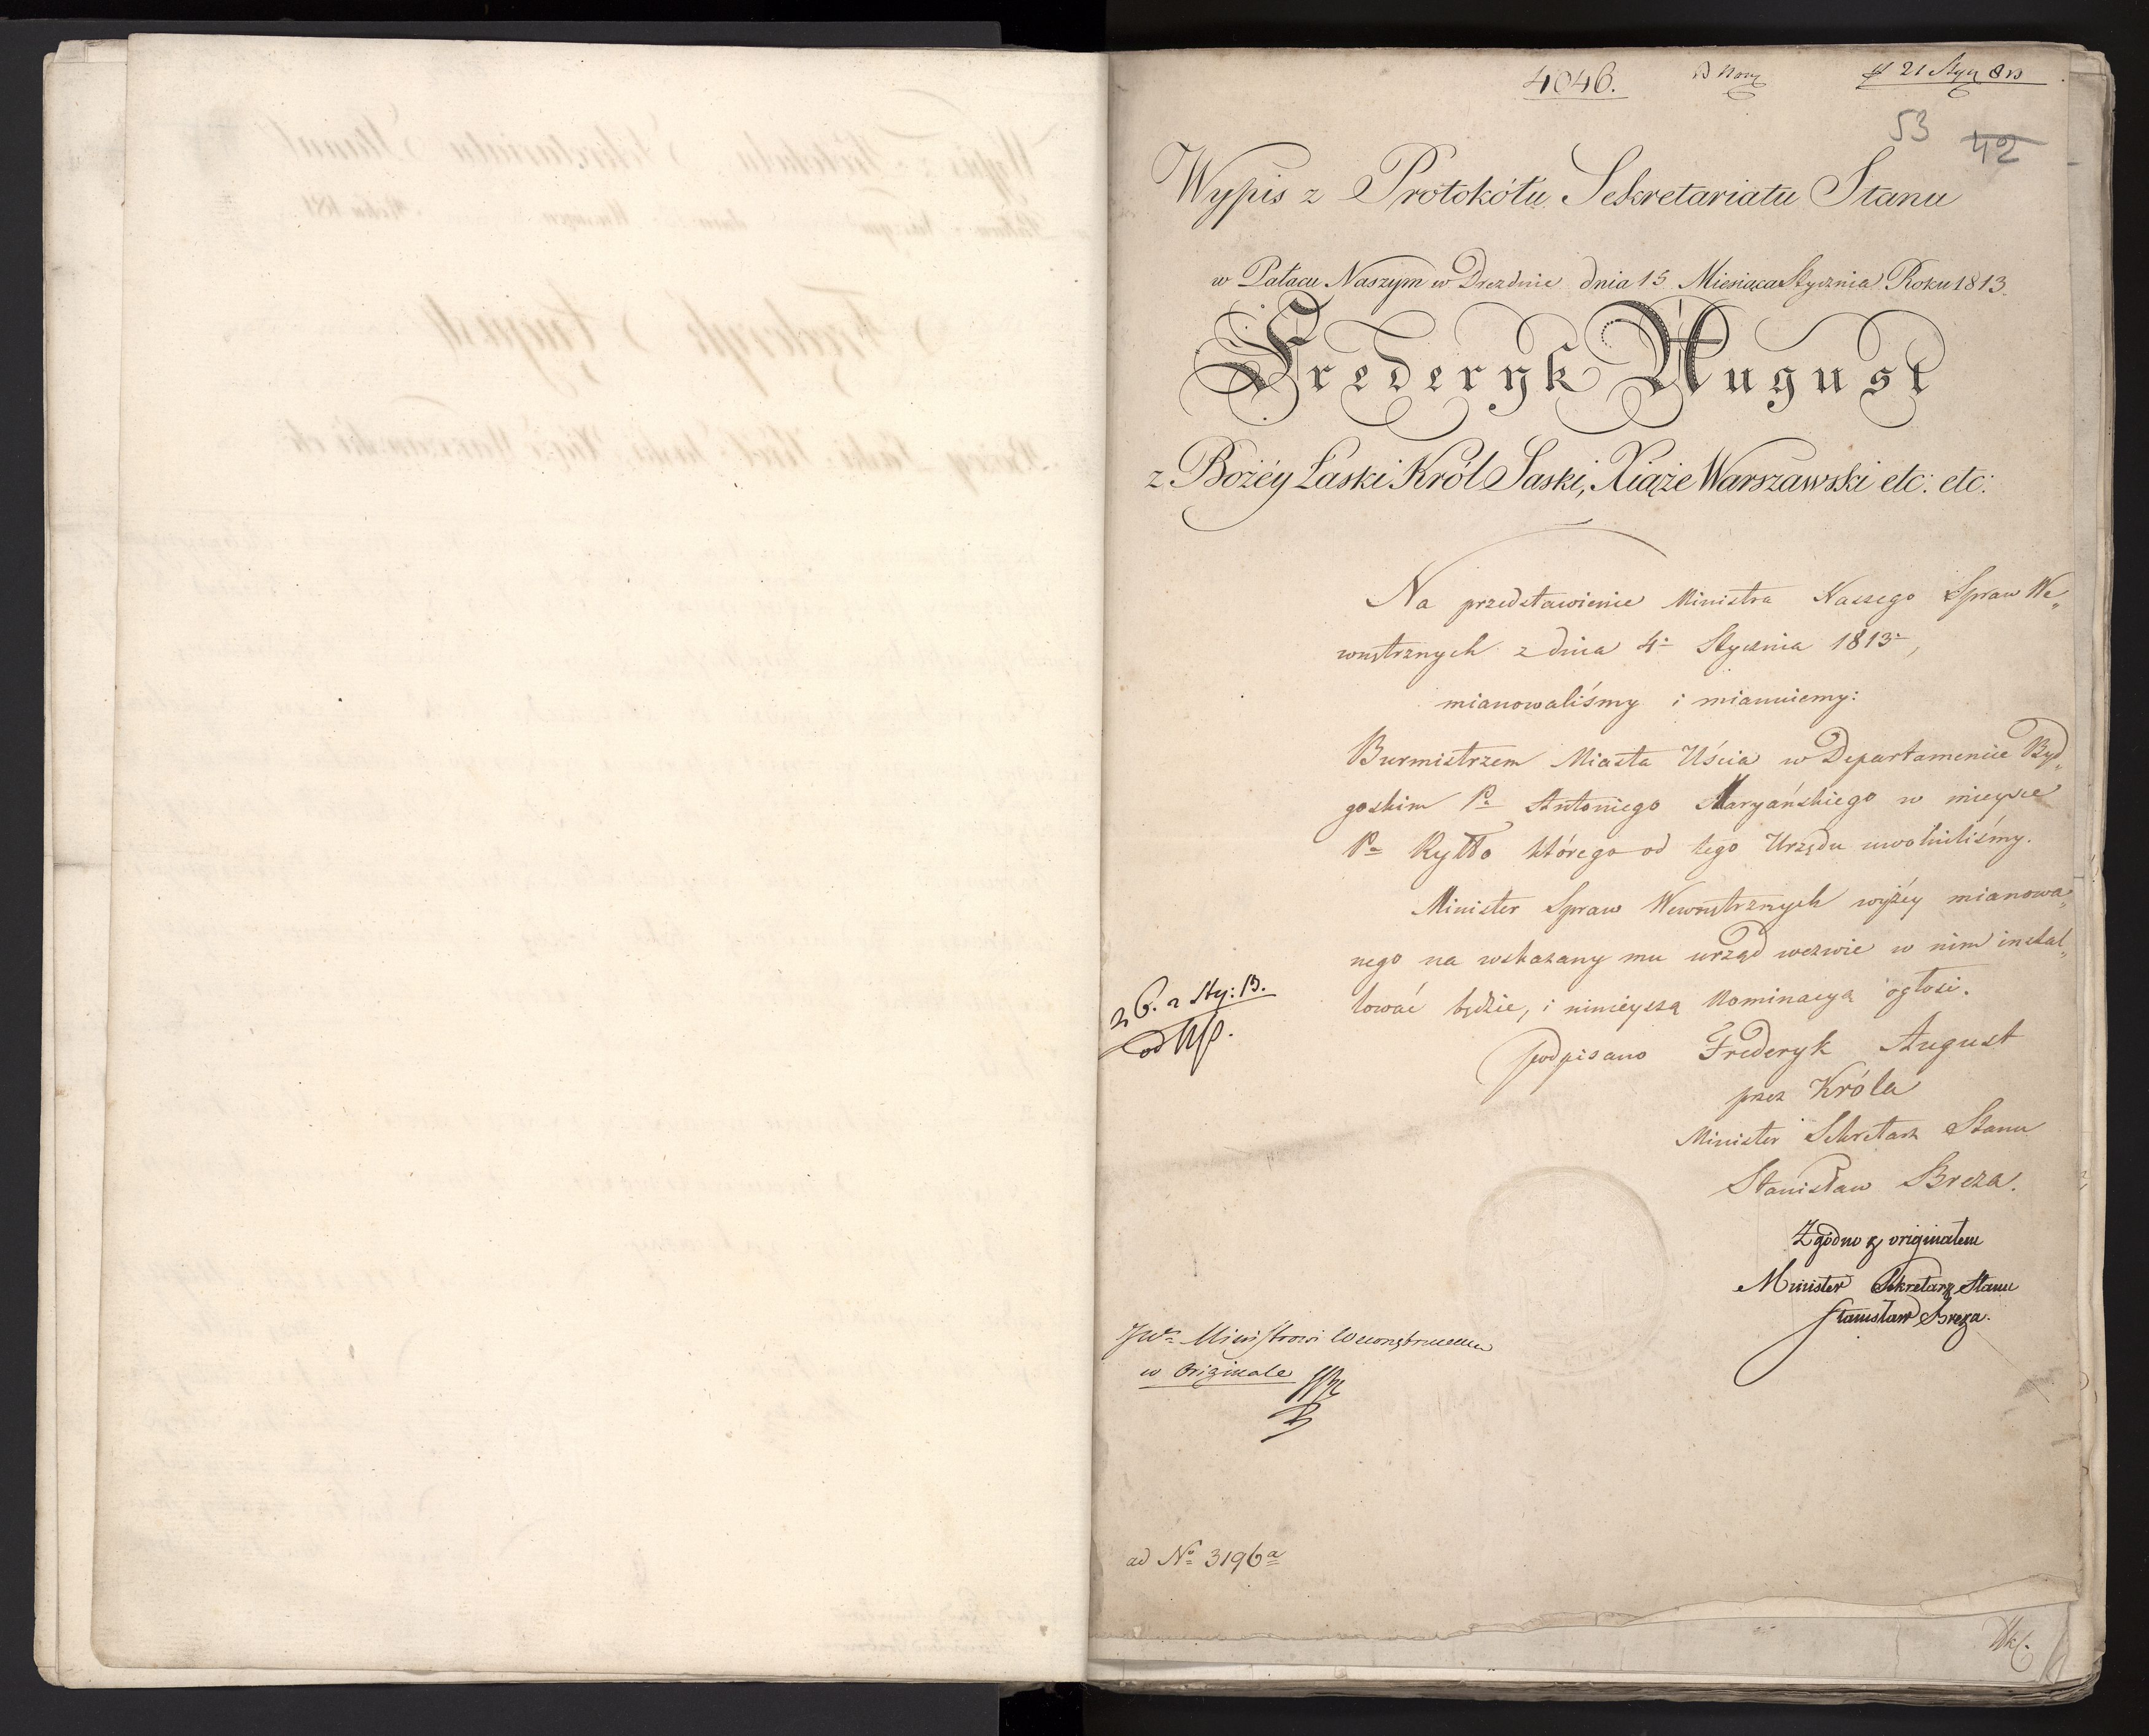 4046.
21 Stycz 813
53 42
Wypis z Protokółu Sekretariatu Stanu
w Pałacu Naszym w Dreznie dnia 15 Miesiąca Stycznia Roku 1813.
Frederyk August
z Bożéy Łaski Król Saski, Xiąże Warszawski etc: etc:
Na przedstawienie Ministra Naszego Spraw We„
wnętrznych z dnia 4. Stycznia 1813,
mianowaliśmy i mianuiemy:
Burmistrzem Miasta Uścia w Departamencie Byd„
goskim Pa Antoniego Maryańskiego w mieysce
Pa Rytto którego od tego Urzędu uwolniliśmy.
Minister Spraw Wewnętrznych wyżéy mianowa„
nego na wskazany mu urząd wezwie w nim instal„
lować będzie, i ninieyszą Nominacyą ogłosi.
podpisano Frederyk August
przez Króla
Minister Sekretarz Stanu
Stanisław Breza.
Zgodno z originałem
Minister Sekretarz Stanu
Stanisław Breza.
JWu Ministrowi Wewnętrznemu
w Originale
ad No 3196a